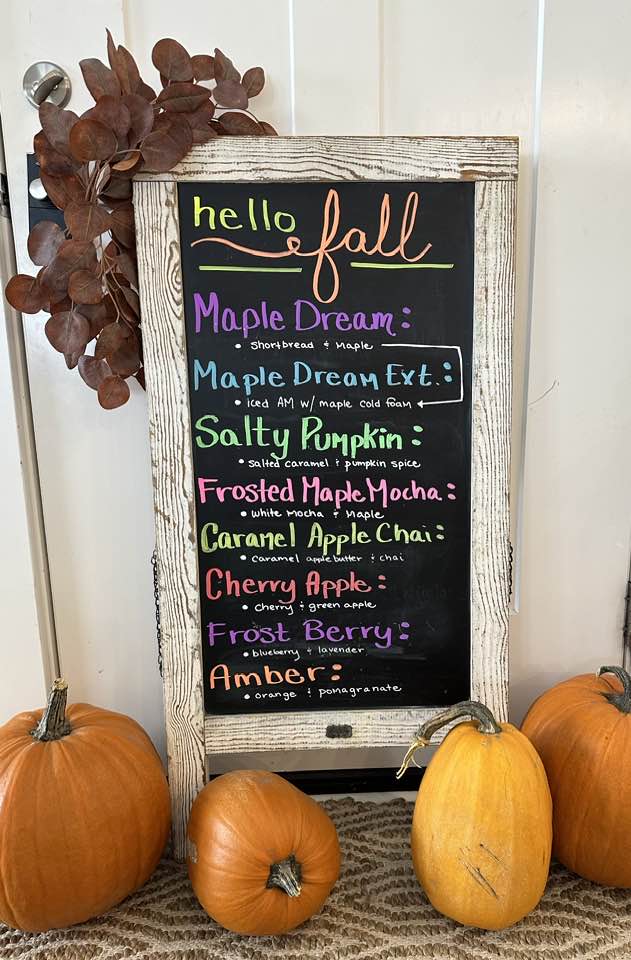 hello fall
Maple Dream:
• Shortbread & Maple
Maple Dream Ext.:
• iced AM w/ maple cold foam
Salty Pumpkin:
• salted caramel & pumpkin spice
Frosted Maple Mocha:
• white mocha & Maple
Caramel Apple Chai:
• caramel apple butter & chai
Cherry Apple:
• cherry & green apple
Frost Berry:
• blueberry & lavender
Amber:
• orange & pomagranate